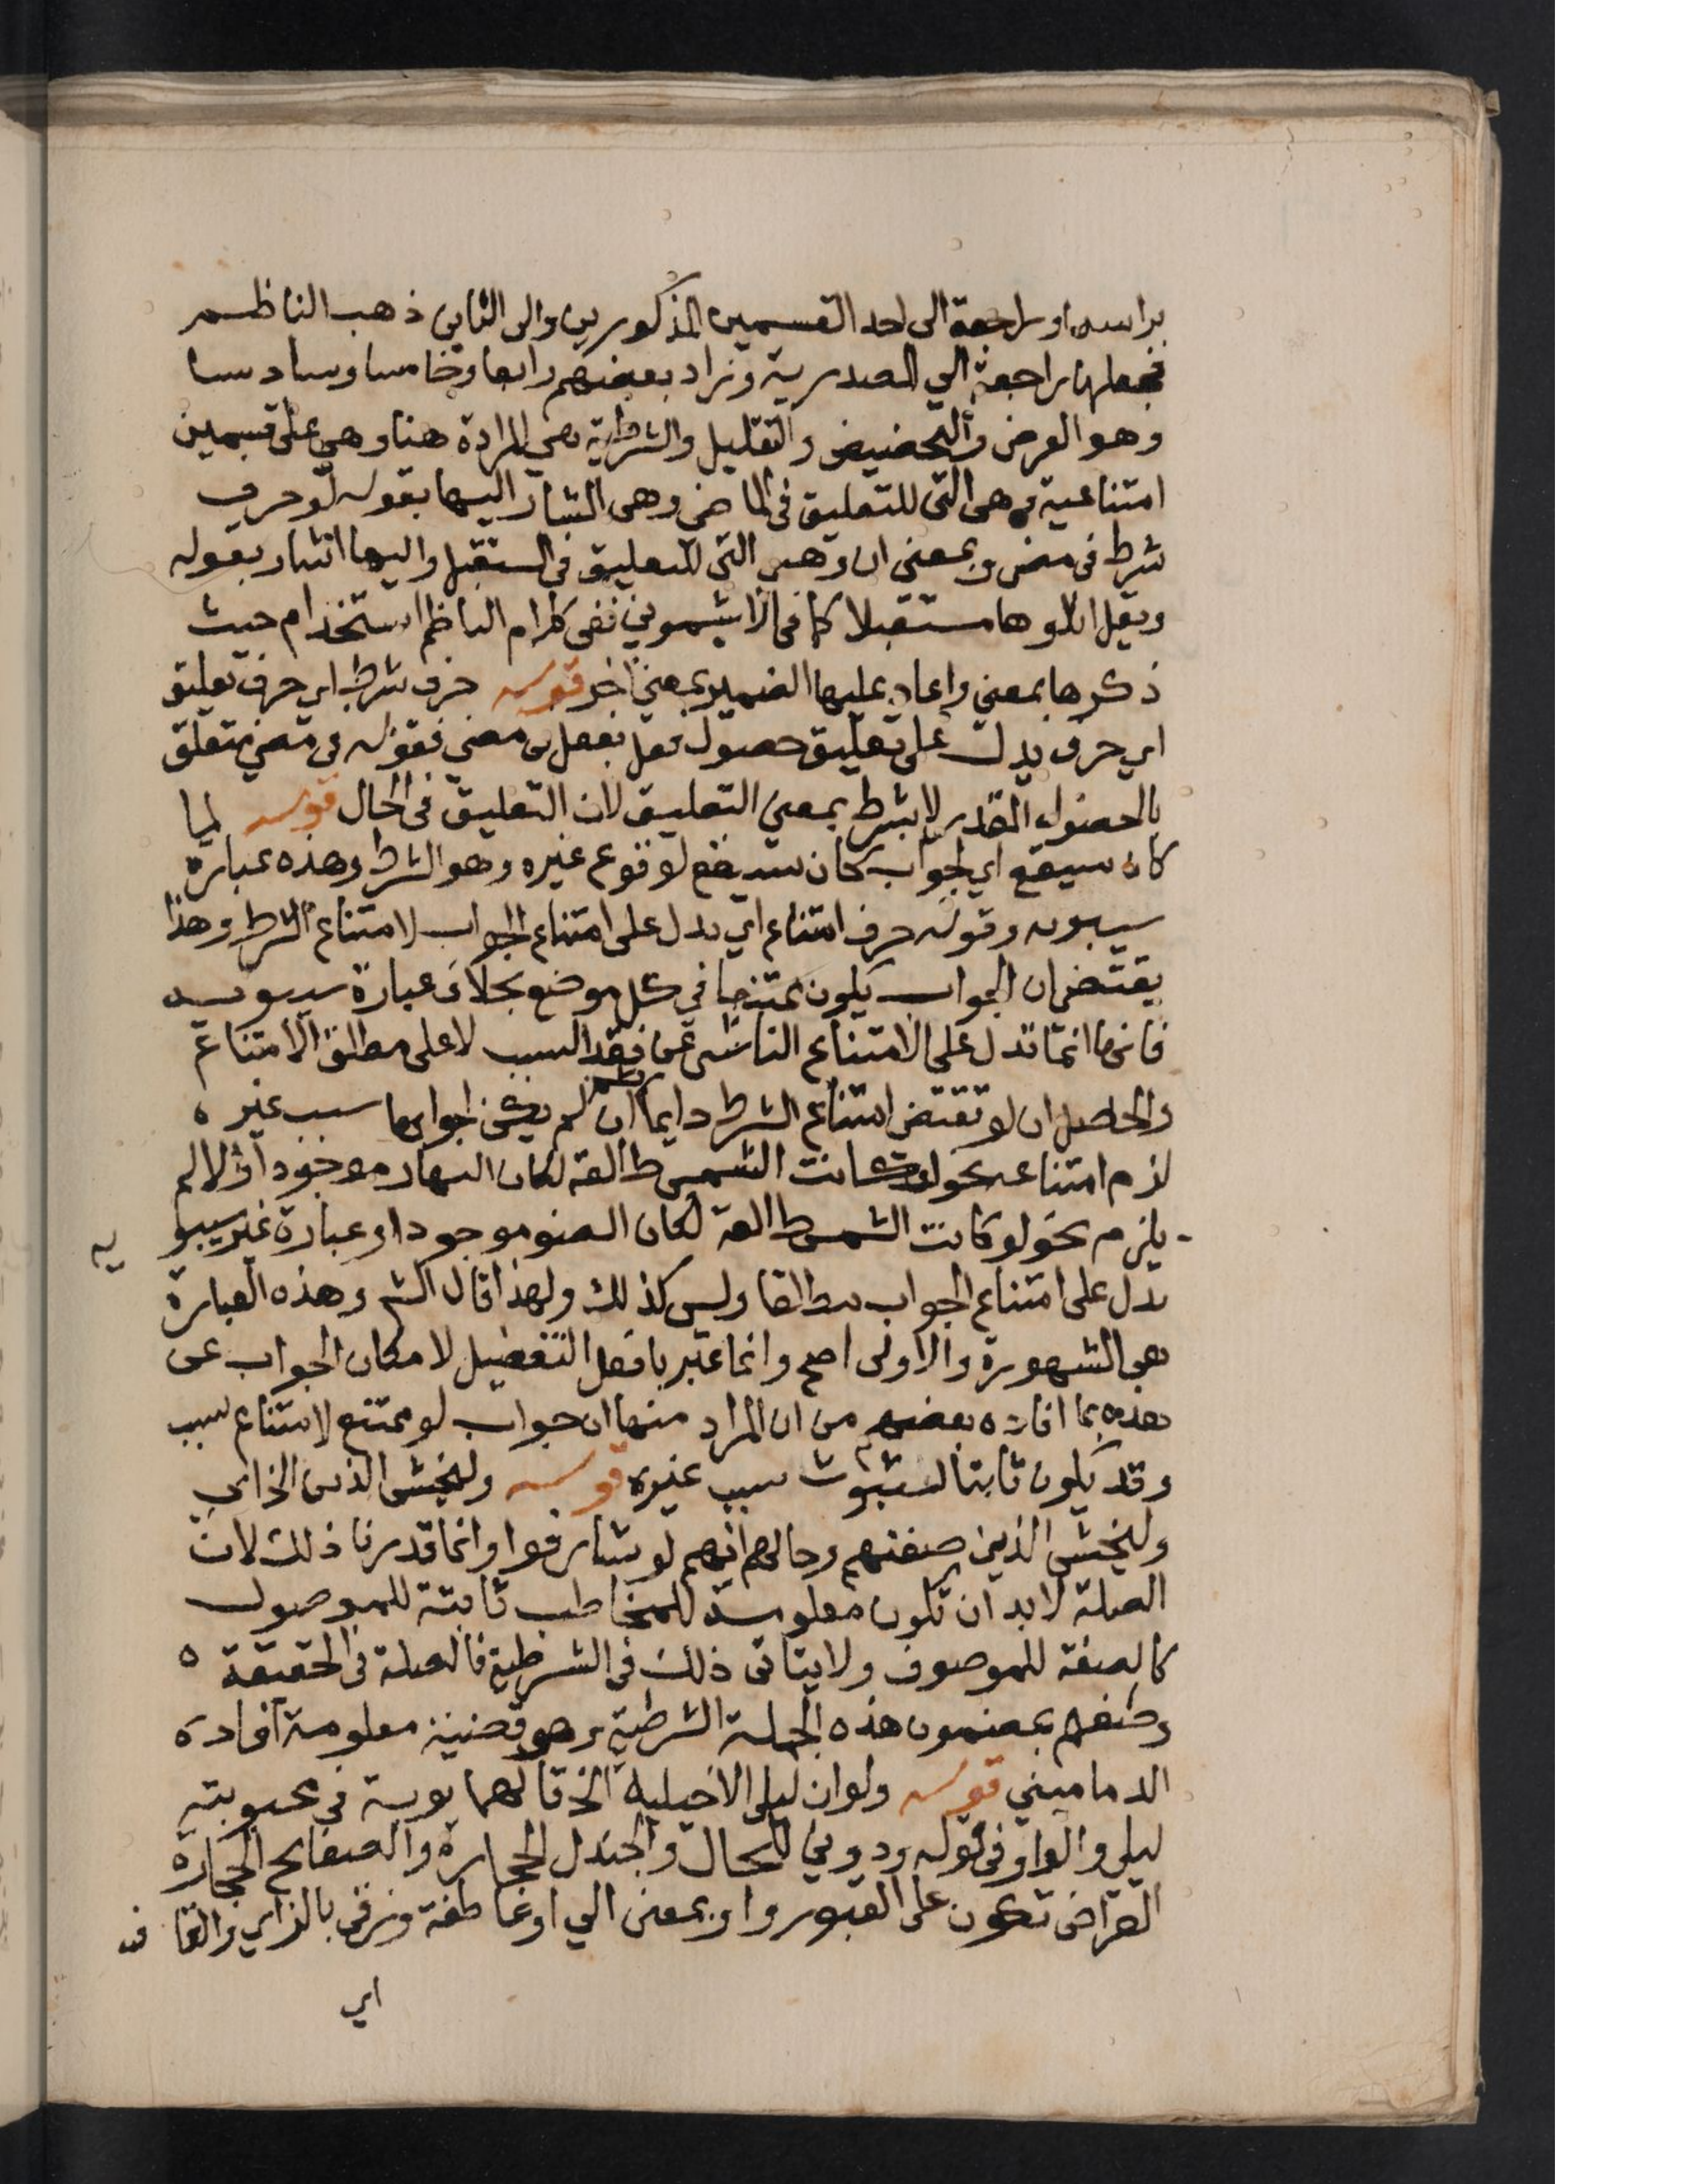 براسه او راجعة الى احد القسمين المذكورين والى الثاني ذهب الناظم
فجعلها راجعة الي المصدرية وزاد بعضهم رابعا وخامسا وسادسا
وهو العرض والتحضيض والتقليل والشرطية هي المرادة هنا وهي على قسمين
امتناعية وهى التى للتعليق فى الماضي وهى المشار اليها بقوله لو حرف
شرط فى مضي وبمعنى ان وهي التى للتعليق في المستقبل واليها اشار بقوله
ويقل ايلاوها مستقبلا كما في الاشموني ففى كلام الناظم استخدام حيث
ذكرها بمعنى واعاد عليها الضمير بمعنى اخر قوله حرف شرط اي حرف تعليق
اي حرف يدل على تعليق حصول فعل بفعل في مضى فقوله في مضي متعلق
بالحصول المقدر لا بشرط بمعنى التعليق لان التعليق فى الحال قوله لما
كان سيقع اي الجواب كان سيقع لوقوع غيره وهو الشرط وهذه عبارة
سيبويه وقوله حرف امتناع اي يدل على امتناع الجواب لامتناع الشرط وهذا
يقتضى ان الجواب يكون ممتنعا في كل موضع بخلاف عبارة سيبويه
فانها انما تدل على الامتناع الناشى عن فقد السبب لا على مطلق الامتناع
والحاصل ان لو تقتضى امتناع الشرط دايما ثم ان لم يكن لجوابها سبب غيره
لزم امتناعه نحو لو كانت الشمس طالعة لكان النهار موجودا والا لم
يلزم نحو لو كانت الشمس طالعة لكان الضوء موجودا وعبارة غير سيبويه
تدل على امتناع الجواب مطلقا وليس كذلك ولهذا قال الش وهذه العبارة
هي المشهورة والاولى اصح وانما عبر بافعل التفضيل لامكان الجواب عن
هذه بما افاده بعضهم من ان المراد منها ان جواب لو ممتنع لامتناع سببه
وقد يكون ثابتا لثبوت سبب غيره قوله وليخش الذين الخ اي
وليخش الذين صفتهم وحالهم انهم لو شارفوا وانما قدرنا ذلك لان
الصلة لابد ان تكون معلومة للمخاطب ثابتة للموصول
كالصفة للموصوف ولا يتاتى ذلك في الشرطية فالصلة فى الحقيقة
وصفهم بمضمون هذه الجملة الشرطية وهو قضية معلومة افاده
الدماميني قوله ولو ان ليلى الاخيلية الخ قالهما توبة في محبوبته
ليلي والواو فى قوله ودوني للحال والجندل الحجارة والصفايح الحجارة
العراض تكون على القبور واو بمعنى الي او عاطفة وزقى بالزاي والقاف
اي